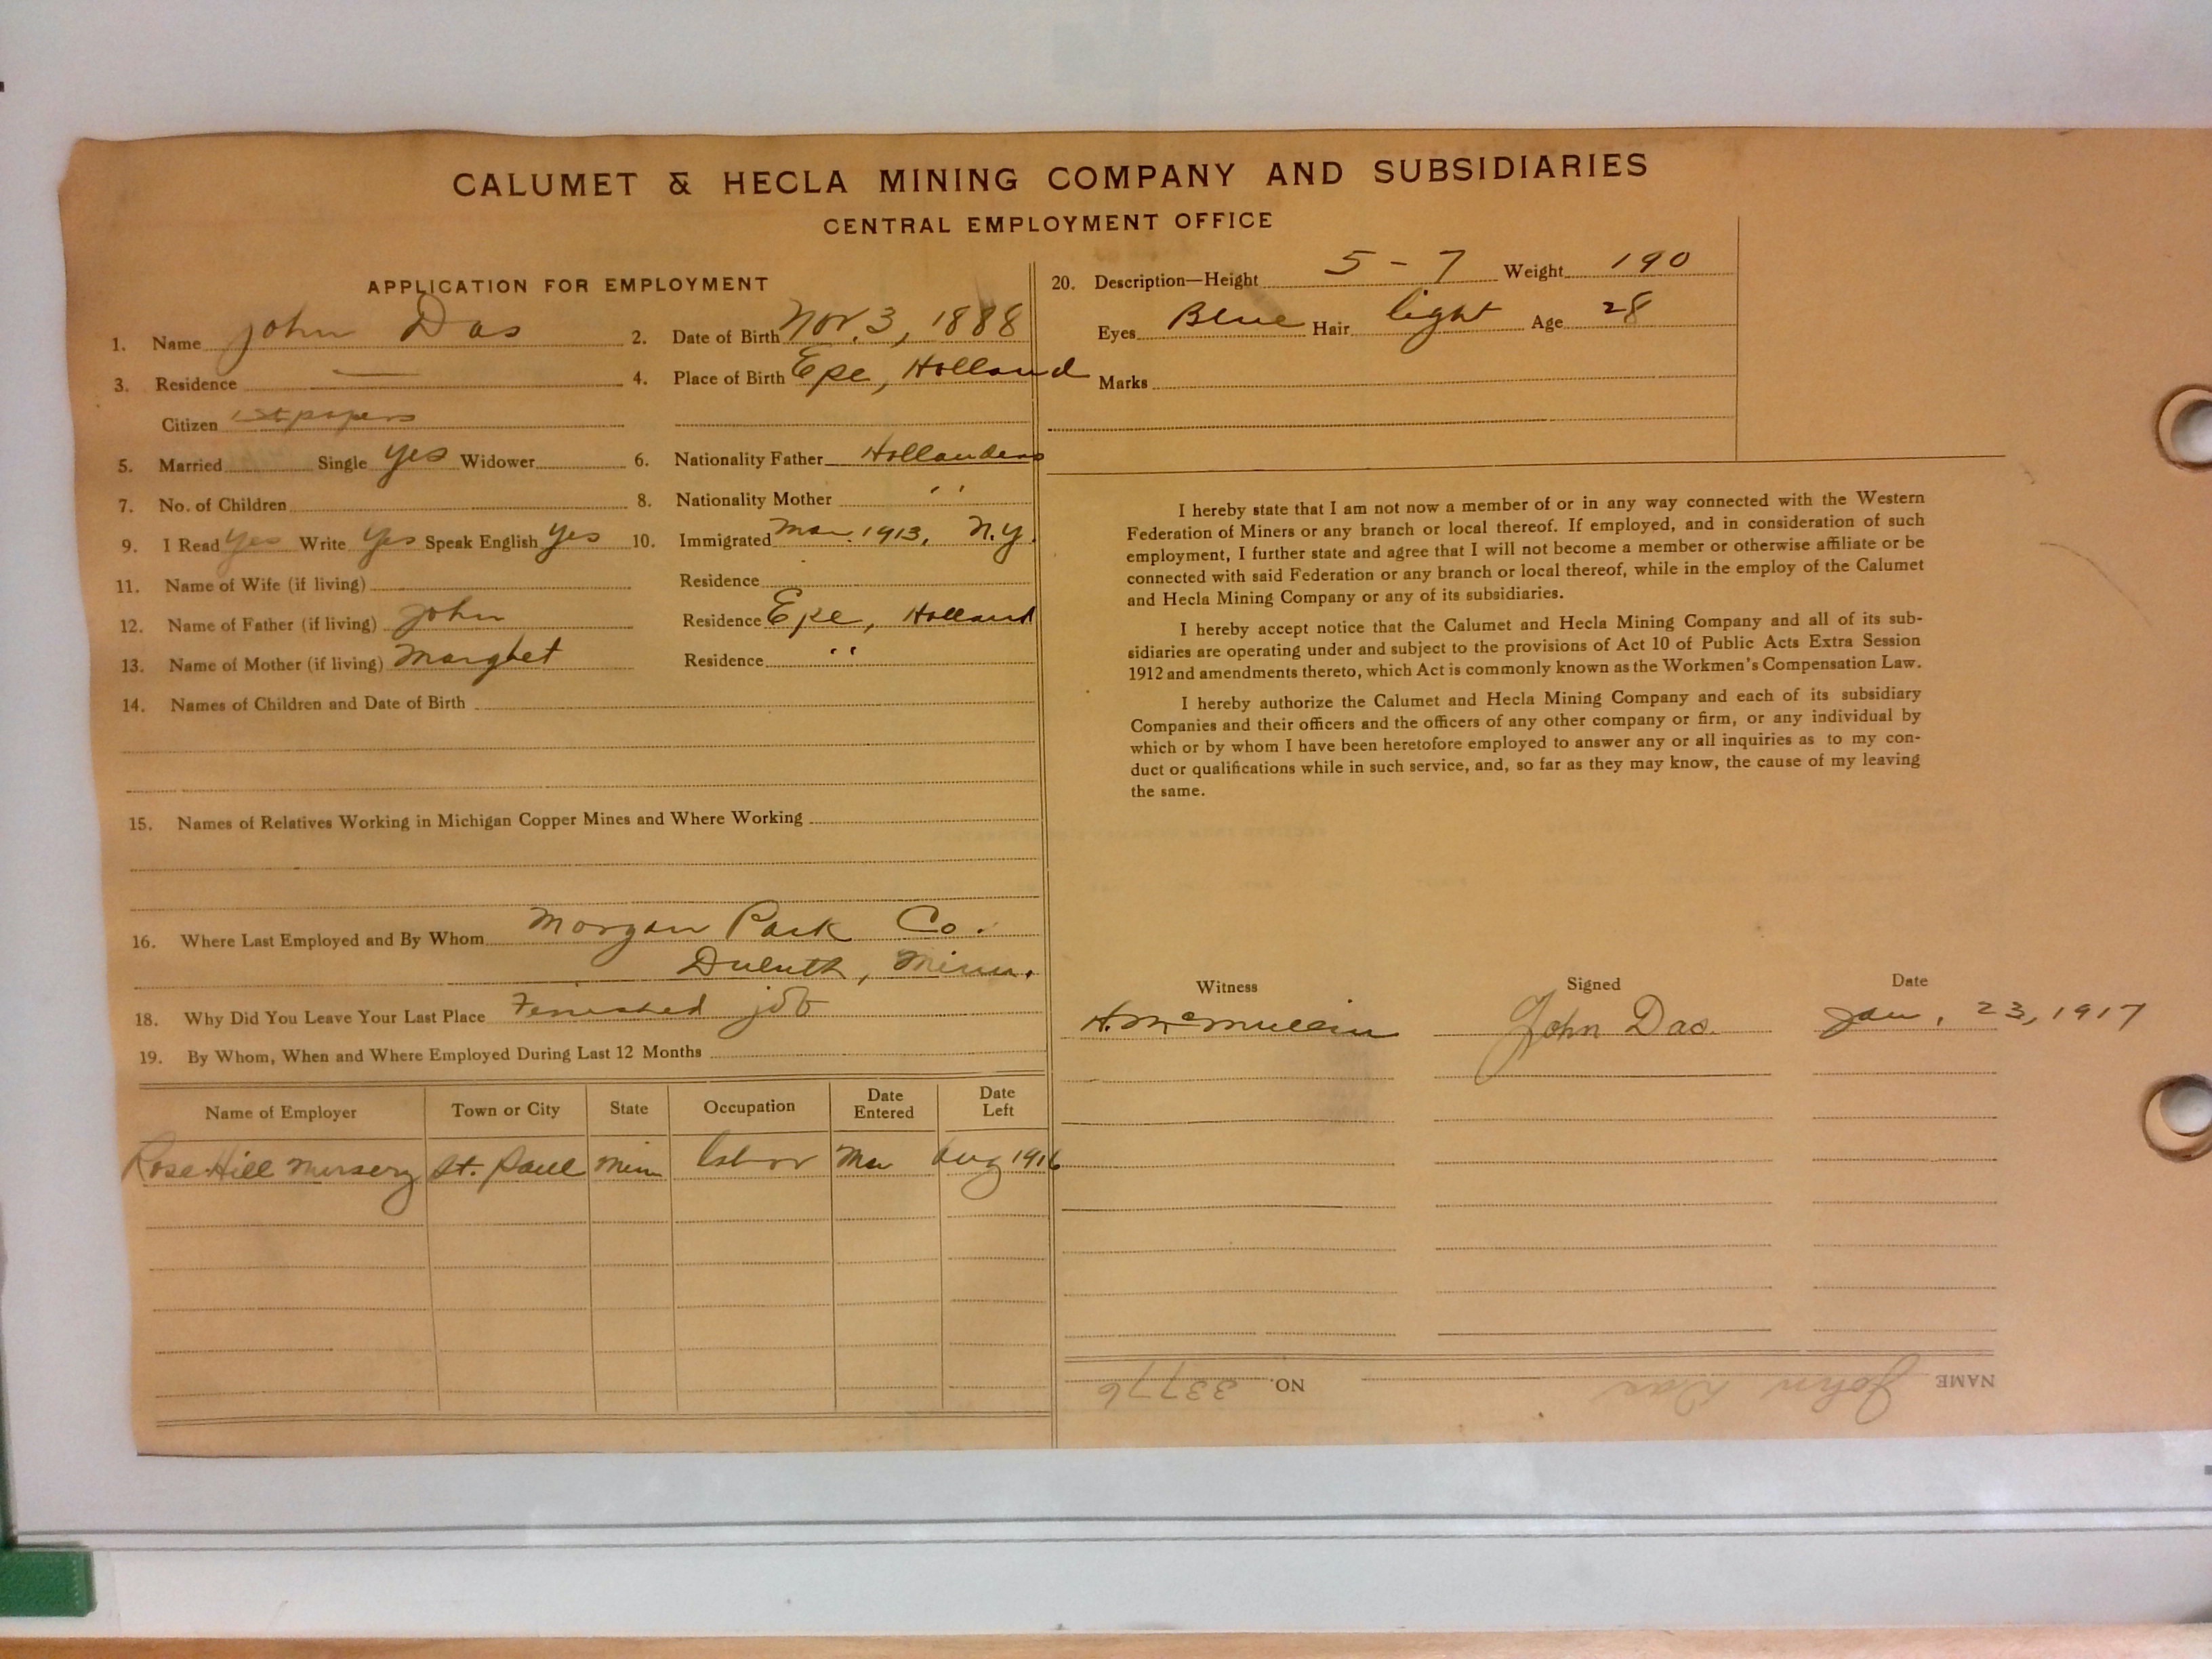 CALUMET & HECLA MINING COMPANY AND SUBSIDIARIES
CENTRAL EMPLOYMENT OFFICE
APPLICATION FOR EMPLOYMENT
1. Name John Das 2. Date of Birth Nov. 3, 1888
3. Residence — 4. Place of Birth Epe, Holland
Citizen 1st papers
5. Married Single yes Widower 6. Nationality Father Hollander
7. No. of Children 8. Nationality Mother " "
9. I Read yes Write yes Speak English yes 10. Immigrated Mar. 1913, N.Y.
11. Name of Wife (if living) Residence
12. Name of Father (if living) John Residence Epe, Holland
13. Name of Mother (if living) Margbet Residence " "
14. Names of Children and Date of Birth
15. Names of Relatives Working in Michigan Copper Mines and Where Working
16. Where Last Employed and By Whom Morgan Park Co.
Duluth, Minn.
18. Why Did You Leave Your Last Place Finished job
19. By Whom, When and Where Employed During Last 12 Months
Name of Employer Town or City State Occupation Date Entered Date Left
Rose Hill Nursery St. Paul Minn labor Mar Aug 1916
20. Description—Height 5-7 Weight 190
Eyes Blue Hair light Age 28
Marks
I hereby state that I am not now a member of or in any way connected with the Western
Federation of Miners or any branch or local thereof. If employed, and in consideration of such
employment, I further state and agree that I will not become a member or otherwise affiliate or be
connected with said Federation or any branch or local thereof, while in the employ of the Calumet
and Hecla Mining Company or any of its subsidiaries.
I hereby accept notice that the Calumet and Hecla Mining Company and all of its sub-
sidiaries are operating under and subject to the provisions of Act 10 of Public Acts Extra Session
1912 and amendments thereto, which Act is commonly known as the Workmen's Compensation Law.
I hereby authorize the Calumet and Hecla Mining Company and each of its subsidiary
Companies and their officers and the officers of any other company or firm, or any individual by
which or by whom I have been heretofore employed to answer any or all inquiries as to my con-
duct or qualifications while in such service, and, so far as they may know, the cause of my leaving
the same.
Witness Signed Date
H. McMullin John Das. Jan, 23, 1917
NAME John Das NO. 33776